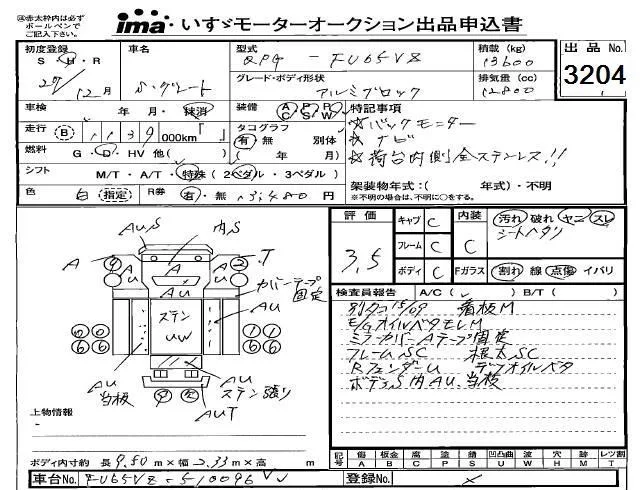 ㊟赤太枠内は必ず
ボールペンで
ご記入下さい。
ima いすゞモーターオークション出品申込書
初度登録 車名 型式 積載(kg) 出品No.
S・H・R QPG-FU65VZ 13600 3204
27/12月 グレード・ボディ形状 排気量(cc)
アルミブロック 12800
車検 年・月・抹消 装備 A C P S R W 特記事項
走行 B 1139 000km「 」 タコグラフ 有 無 別体 ☆バックモニター
( 年/ 月) ☆ナビ
燃料 G・D・HV 他( ) ☆荷台内側全ステンレス!!
シフト M/T・A/T・特殊(2ペダル・3ペダル)
架装物年式:( 年式)・不明
※不明の場合は、不明に○をする。
色 白 (指定) R券 有・無 13,480円
評価 キャブ C 内装 汚れ 破れ ヤニ スレ
3.5 フレーム C C シートヘタリ
ボディ C Fガラス 割れ 線 点傷 イバリ
検査員報告 A/C( ) B/T( )
別タコ15/09 看板M
E/GオイルベタモレM
ミラーカバーAテープ固定
フレームSC 根太SC
RフェンダーU デフオイルベタ
ボデーS内AU.当板
AU,S 内S
A .T
AU カバーテープ固定
AU
ステン
UW
AU
AU 当板
AU ステン張り
AUT
上物情報
-
ボディ内寸約 長9.50m×幅2.33m×高 m
記号 傷 板金 腐 塗 錆 凹凸曲 波 穴 跡 レツ割
A B C P S U W H M T
車台No. FU65VZ-510096 登録No.